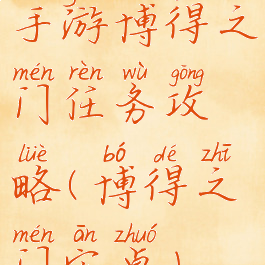 手游博得之
mén rèn wù gōng
门任务攻
lüè bó dé zhī
略(博得之
mén ān zhuó
门安卓)